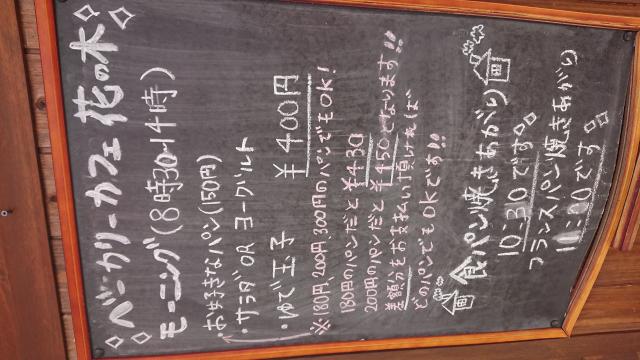 ベーカリーカフェ 花の木
モーニング(8時30~14時)
・お好きなパン(150円)
・サラダ OR ヨーグルト
・ゆで玉子 ¥400円
※180円,200円,300円のパンでもOK!
180円のパンだと¥430
200円のパンだと¥450となります!!
差額分をお支払い頂ければ
どのパンでもOKです!!
食パン焼きあがり
10:30です。
フランスパン焼きあがり
です